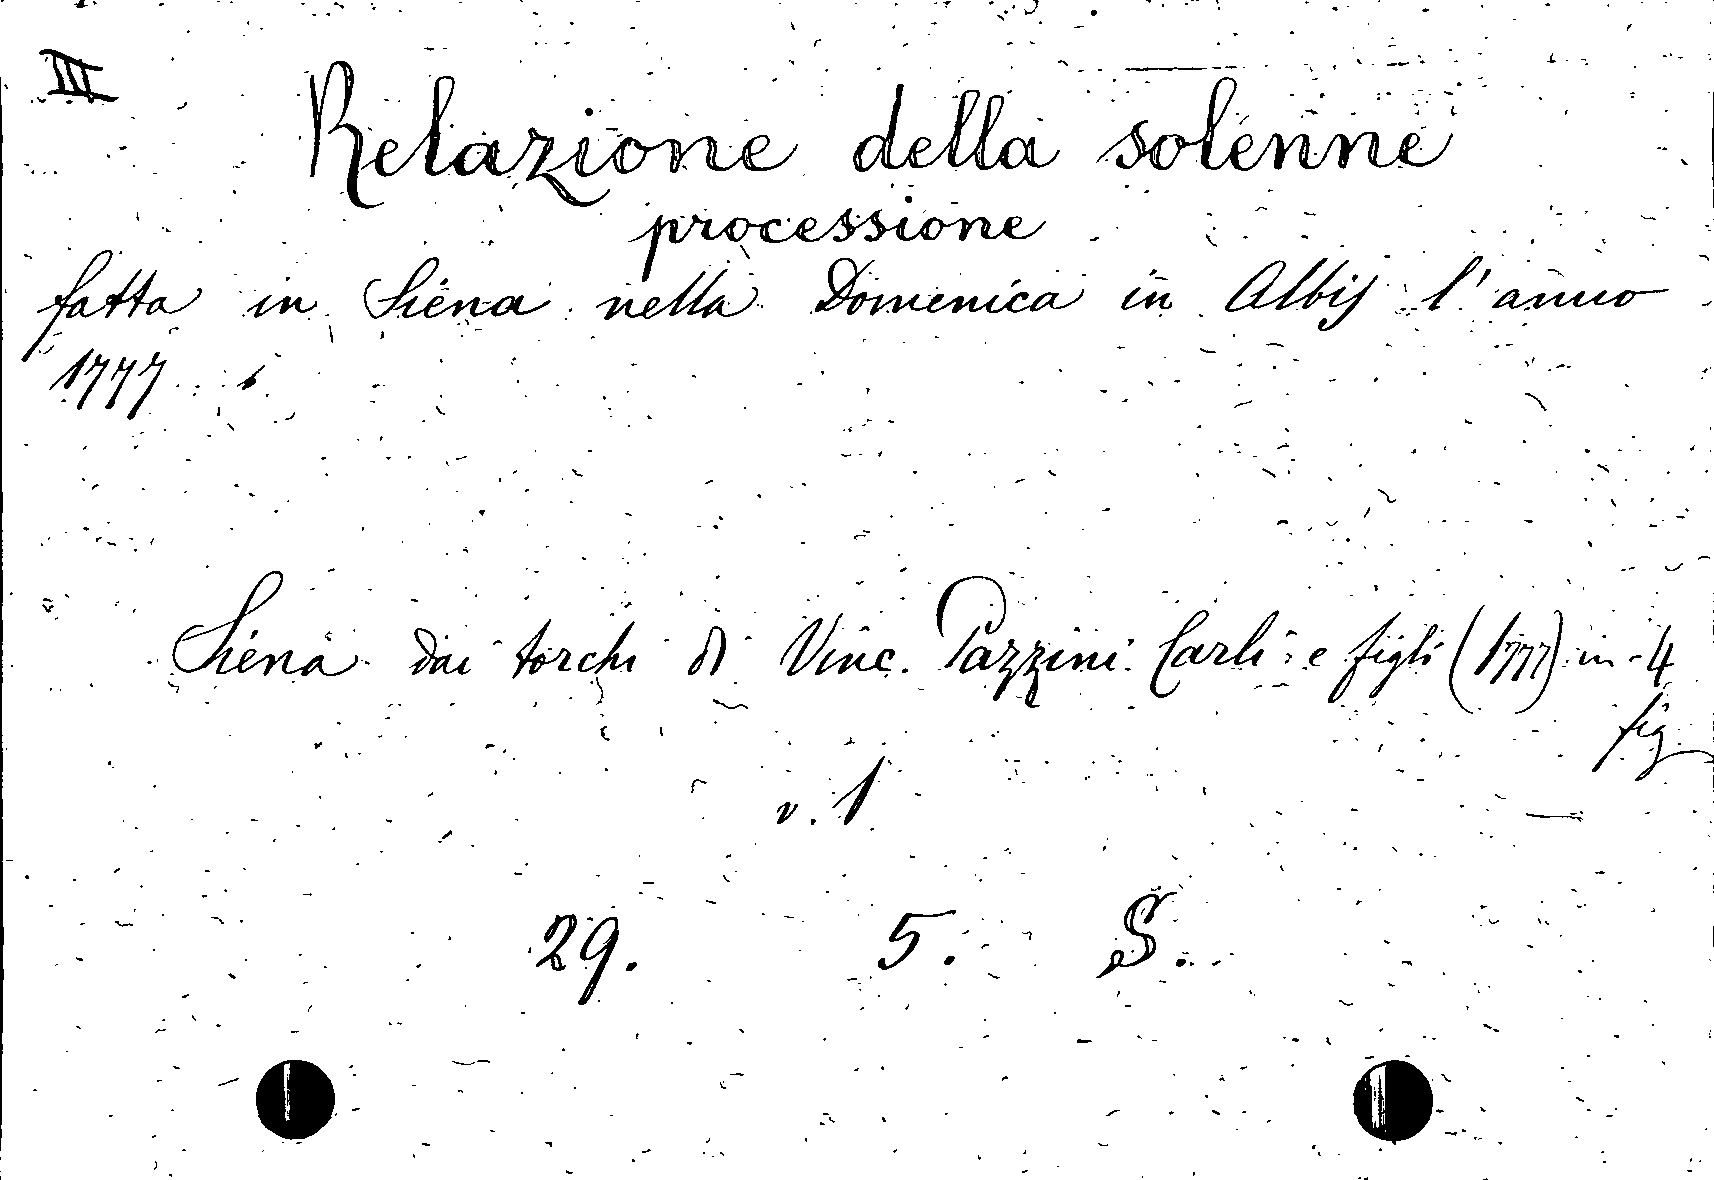 III
Relazione della solenne
processione
fatta in Siena nella Domenica in Albis l'anno
1777.
Siena dai torchi di Vinc. Pazzini Carli e figli (1777) in-4
fig
v. 1
29. 5. S.